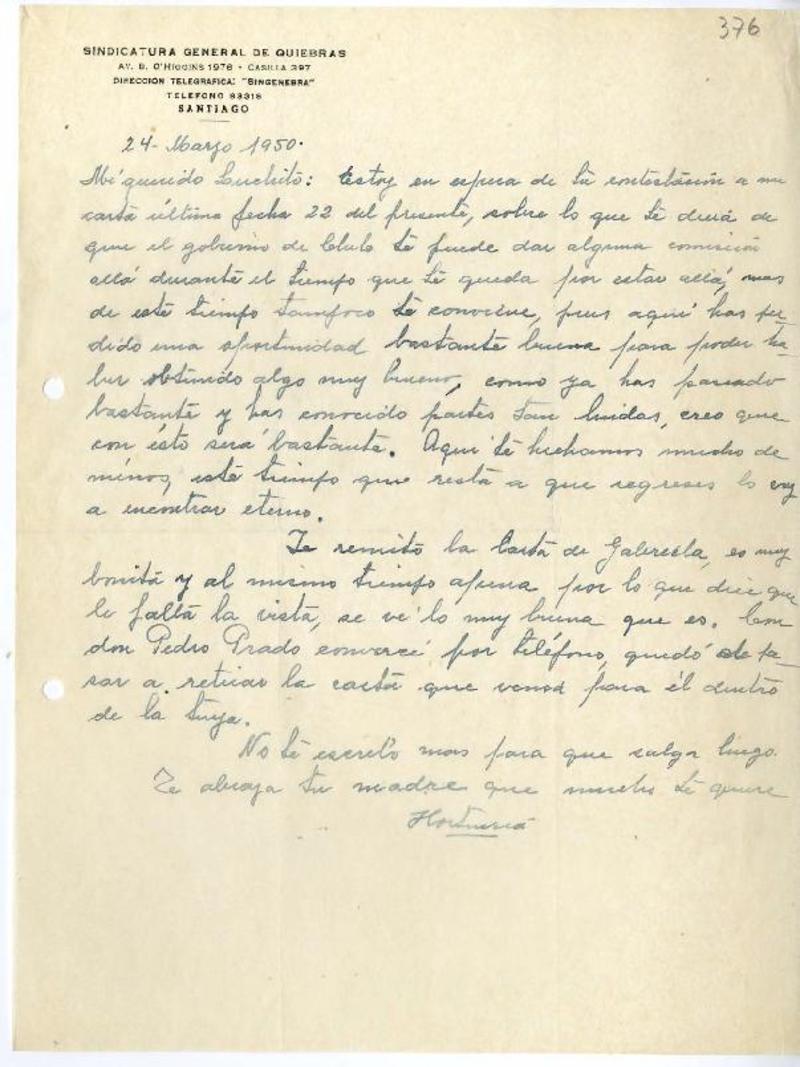 376
SINDICATURA GENERAL DE QUIEBRAS
AV. B. O'HIGGINS 1976 - CASILLA 297
DIRECCION TELEGRAFICA: "SINGENEBRA"
TELEFONO 83318
SANTIAGO
24 - Marzo 1950.
Mi querido Luchito: Estoy en espera de tú contestación a mi
carta última fecha 22 del presente, sobre lo que té decía de
que el gobierno de té puede dar alguna comisión
allá durante el tiempo que té queda por estar allá, mas
de esté tiempo tampoco té conviene, pues aquí has per-
dido una oportunidad bastante buena para poder ha-
ber obtenido algo muy bueno, como ya has paseado
bastante y has conocido partes tan lindas, creo que
con ésto será bastante. Aquí té hechamos mucho de
ménos, esté tiempo que resta a que regreses lo voy
a encontrar eterno.
Te remito la carta de Gabriela, es muy
bonita y al mismo tiempo apena por lo que dice que
le falta la vista, se vé lo muy buena que es. Con
don Pedro Prado conversé por teléfono, quedó de pa-
sar a retirar la carta que venía para él dentro
de la tuya.
No té escribo mas para que salga luego.
Te abraza tu madre que mucho té quiere
Hortensia